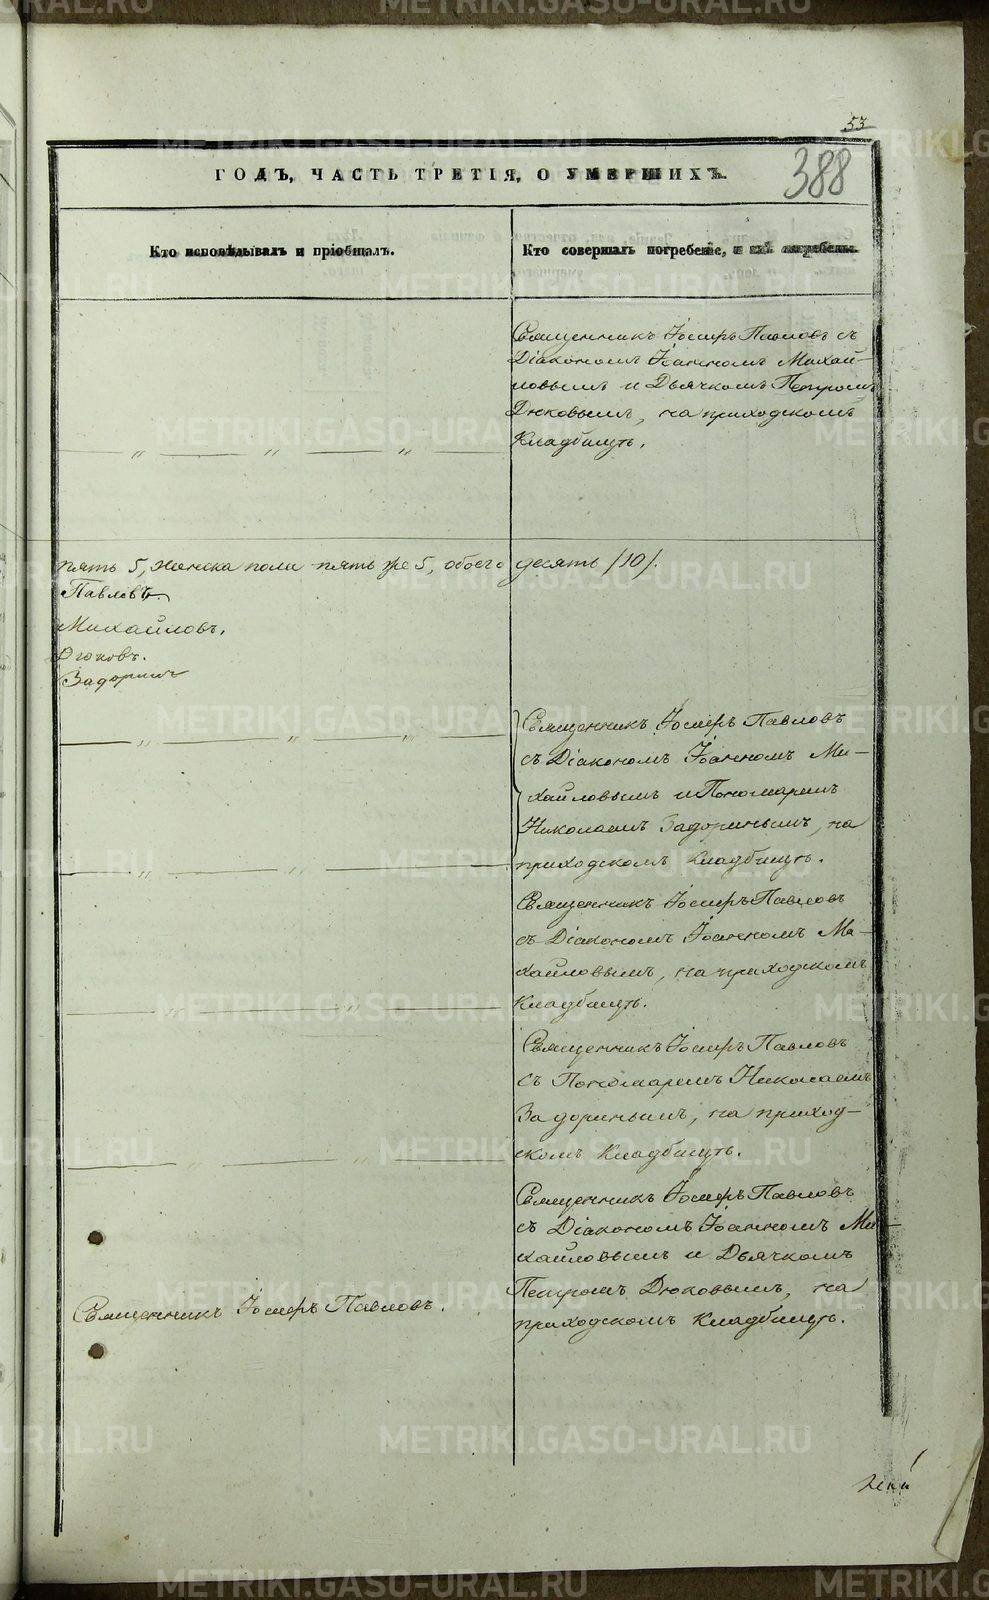 53
388
ГОДЪ, ЧАСТЬ ТРЕТІЯ, О УМЕРШИХЪ.
Кто исповѣдывалъ и пріобщалъ.
Кто совершалъ погребеніе, и гдѣ погребены.
Священникъ Іосифъ Павловъ съ
Діакономъ Іоанномъ Михай-
ловымъ и Дьячкомъ Петромъ
Дюковымъ, на приходскомъ
Кладбищѣ.
пять 5, женска пола пять же 5, обоего десять /10/.
Павловъ.
Михайловъ.
Дюковъ.
Задоринъ
Священникъ Іосифъ Павловъ
съ Діакономъ Іоанномъ Ми-
хайловымъ и Пономаремъ
Николаемъ Задоринымъ, на
приходскомъ Кладбищѣ.
Священникъ Іосифъ Павловъ
съ Діакономъ Іоанномъ Ми-
хайловымъ, на приходскомъ
Кладбищѣ.
Священникъ Іосифъ Павловъ
съ Пономаремъ Николаемъ
Задоринымъ, на приход-
скомъ Кладбищѣ.
Священникъ Іосифъ Павловъ.
Священникъ Іосифъ Павловъ
съ Діакономъ Іоанномъ Ми-
хайловымъ и Дьячкомъ
Петромъ Дюковымъ, на
приходскомъ Кладбищѣ.
METRIKI.GASO-URAL.RU